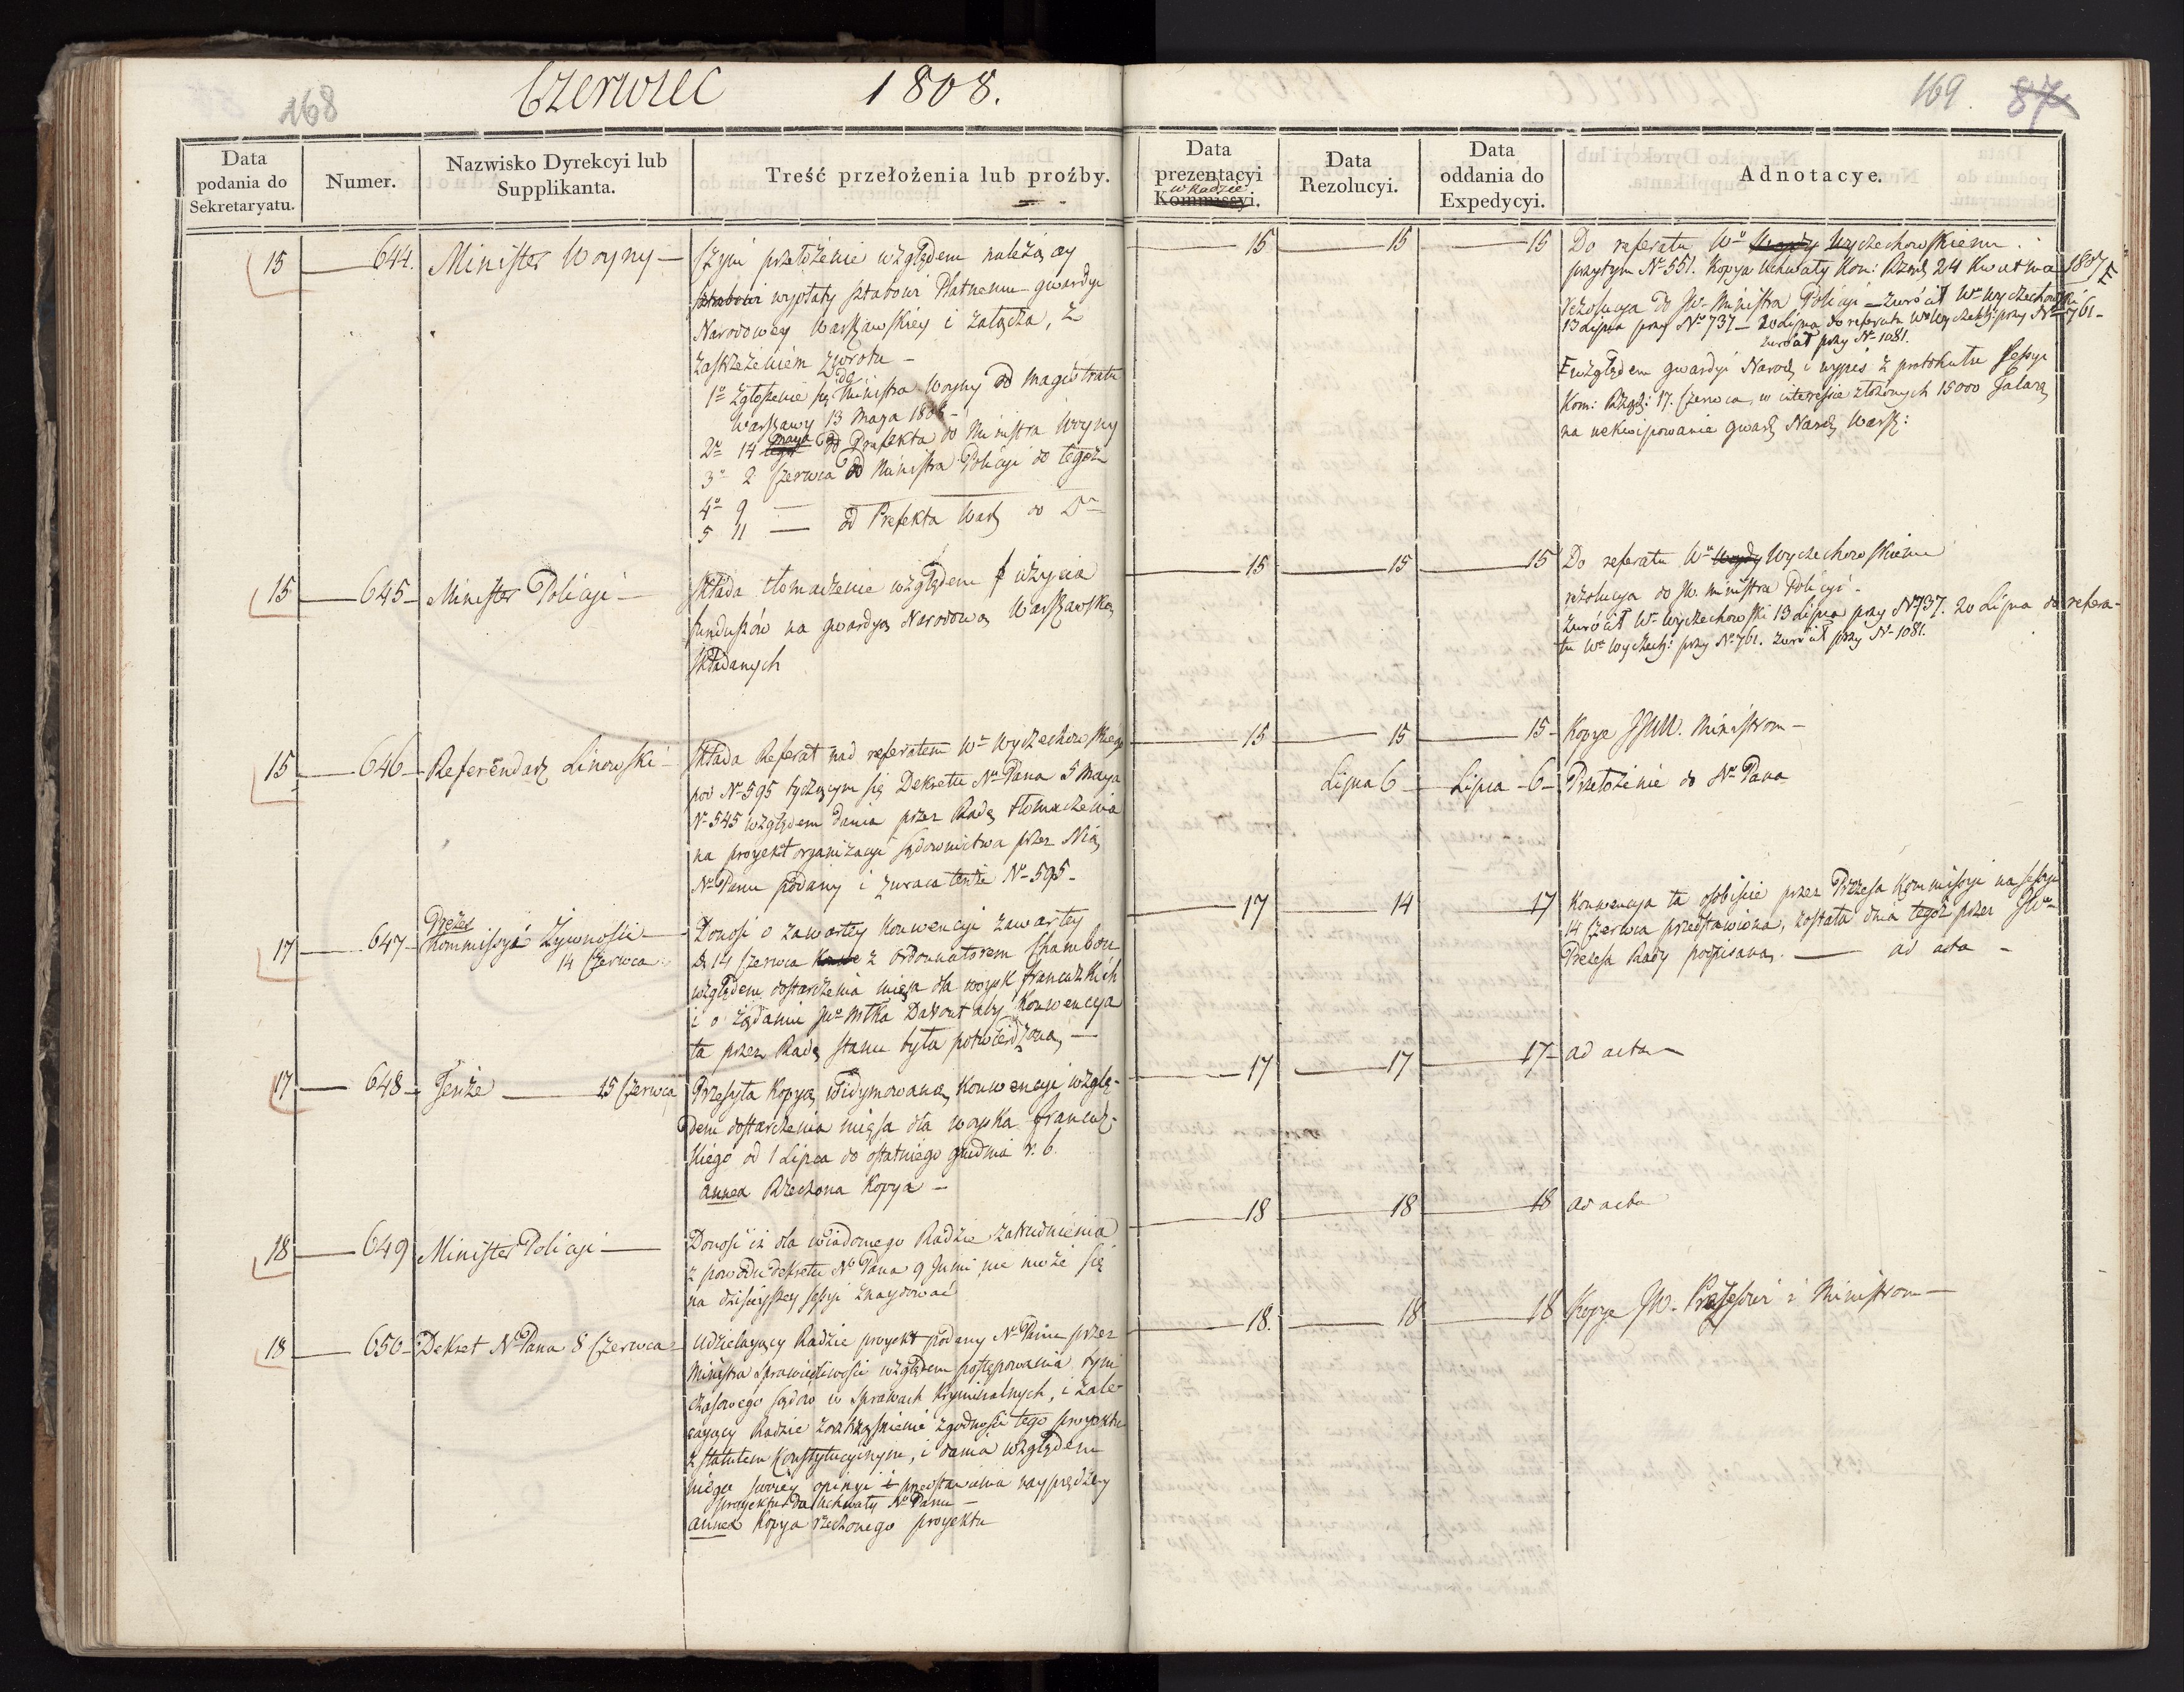 168
Czerwiec 1808.
169. 87
Data podania do Sekretaryatu.
Numer.
Nazwisko Dyrekcyi lub Supplikanta.
Treść przełożenia lub proźby.
Data prezentacyi w Radzie Kommissyi.
Data Rezolucyi.
Data oddania do Expedycyi.
Adnotacye.
15 644. Minister Woyny
Czyni przełożenie względem należącey
sztabowi wypłaty sztabowi Płatnemu gwardyi
Narodowey Warszawskiey i załącza, z
zastrzeżeniem zwrotu
1o Zgłoszenie się do Ministra Woyny od Magistratu
Warszawy 13 Maja 1808
2o 14 tegoż Maja od Prefekta do Ministra Woyny
3o 2 Czerwca od Ministra Policyi do tegoż
4o 9 —
5 11 — od Prefekta Warsz do Do
15 15 15
Do referatu Wo Wyczechowskiemu.
przytym No 551. Kopya Uchwały Kom: Rządz 24 Kwietnia 1807 F
rezolucya do JW. Ministra Policyi — zwrócił Wo Wyczechowski
13 Lipca przy No 737 — 20 Lipca do referatu Wo Wyczech: przy No 761 —
zwrócił przy No 1081.
F względem gwardyi Narod i wypis z protokułu Sessyi
Kom: Rządz: 17. Czerwca w interessie złożonych 15000 Talarą
na uekwipowanie gward Narod Warsz:
15 645 Minister Policyi
Składa tłomaczenie względem użycia
funduszów na gwardyą Narodową Warszawską
składanych
15 15 15
Do referatu Wo Wyczechowskiemu
rezolucya do JW. ministra Policyi.
Zwrócił Wo Wyczechowski 13 Lipca przy No 737. 20 Lipca do refera-
tu Wo Wyczech: przy No 761. zwrócił przy No 1081.
15 646 Referendarz Linowski
Składa Referat nad referatem Wo Wyczechowskiego
pod No 595 tyczącym się Dekretu No Pana 5 Maya
No 545 względem dania przez Radę tłomaczenia
na proyekt organizacyi sądownictwa przez Nią
No Panu podany i zwraca tenże No 595
15 15 15 Kopye JJWW. Ministrom
Lipca 6 Lipca 6 Przełożenie do No Pana
17 647 Prezes Kommissyi Żywności
14 Czerwca
Donosi o zawartey Konwencyi zawartey
d. 14 Czerwca z Ordonnatorem Chambon
względem dostarczenia mięsa dla woysk francuzkich
i o żądaniu JWo Młka Davout aby Konwencya
ta przez Radę Stanu była potwierdzoną
17 14 17
Konwencya ta osobiście przez Prezesa Kommissyi na sessyi
14 Czerwca przedstawiona, została dnia tegoż przez JWo
Prezesa Rady podpisana. — ad acta
17 648 Tenże 15 Czerwca
Przesyła Kopyą Widymowaną Konwencyi wzglę-
dem dostarczenia mięsa dla woyska francuz-
kiego od 1 Lipca do ostatniego grudnia r. b.
annex Rzeczona Kopya
17 17 17 ad acta
18 649 Minister Policyi
Donosi iż dla wiadomego Radzie zatrudnienia
z powodu dekretu No Pana 9 Juni nie może się
na dzisieyszey sessyi znaydować
18 18 18 ad acta
18 650 Dekret No Pana 8 Czerwca
Udzielaiący Radzie proyekt podany No Panu przez
Ministra Sprawiedliwości względem postępowania tym
czasowego sądów w sprawach kryminalnych, i zale
caiący Radzie roztrząśnienie zgodności tego proyektu
z statutem Konstytucyinym, i dania względem
niego swoiey opinyi i przedstawienia nayprędzey
proyektu do Uchwały No Panu
annex Kopya rzeczonego proyektu
18. 18 18 Kopye JW. Prezesowi i Ministrom